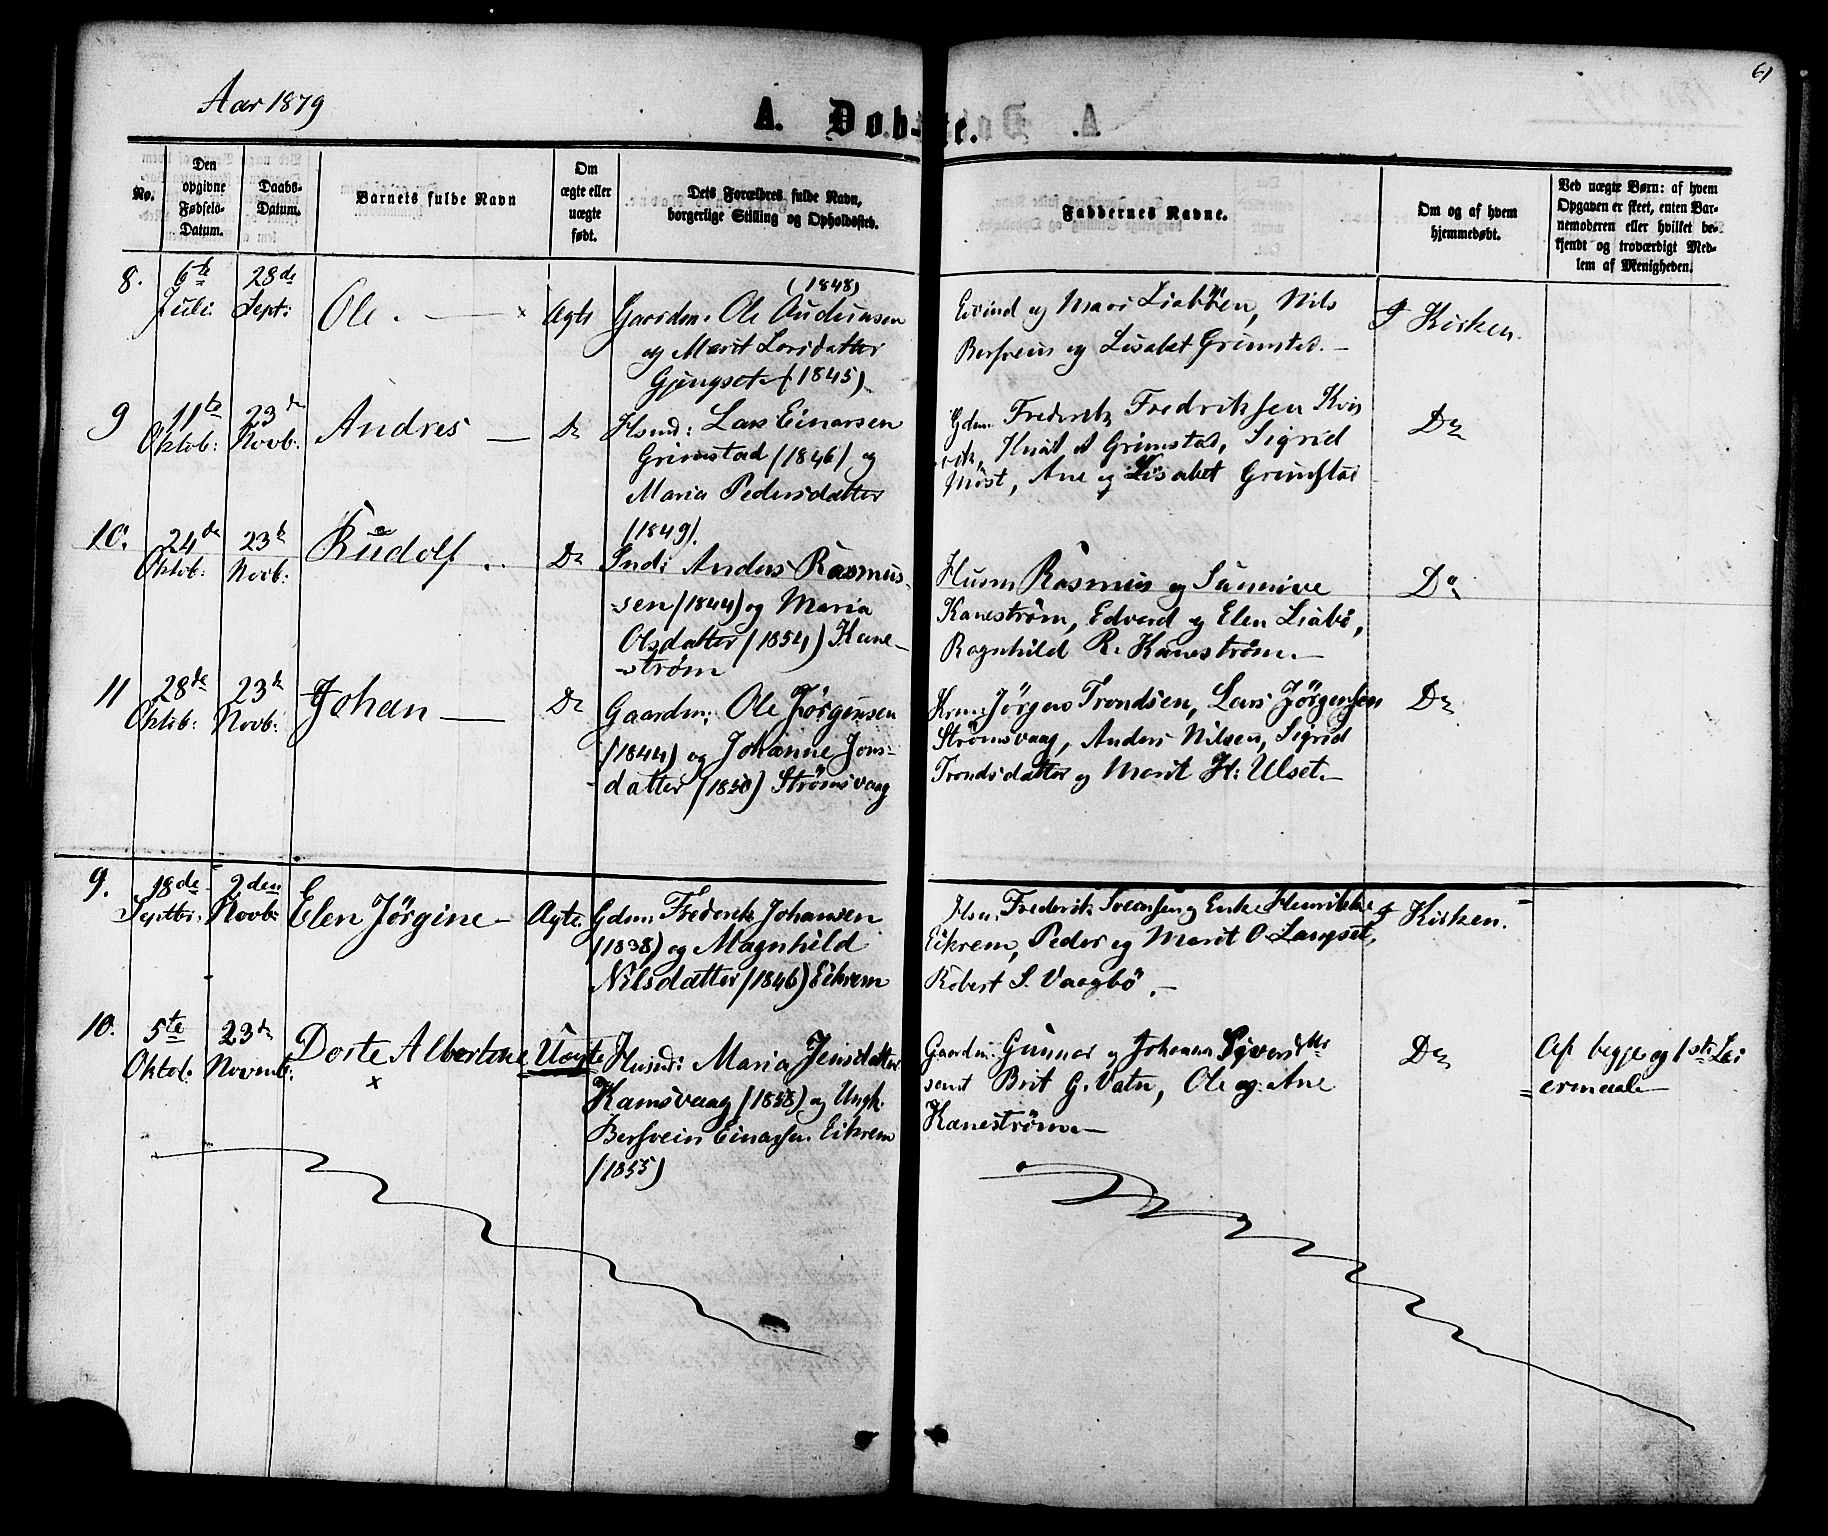 61
Aar 1879
A. Døb-te.
No.
Den opgivne Fødsels-Datum.
Daabs-Datum.
Barnets fulde Navn
Om ægte eller uægte født.
Dets Forældres fulde Navn, borgerlige Stilling og Opholdssted.
Faddernes Navne.
Om og af hvem hjemmedøbt.
Ved uægte Børn: af hvem Opgaven er skeet, enten Barnemoderen eller hvilket bekjendt og troværdigt Medlem af Menigheden.
8.
6te Juli:
28de Sept:
Ole.
Ægte
(1848)
Gaardm: Ole Audunsen
og Marit Larsdatter
Gjengset (1845)
Eivind og Mari Liabøen, Nils
Bersvein og Lisabet Grimstad.
I Kirken.
9
11te Oktob:
23de Novb:
Andres
Do
Husmd: Lars Einarsen
Grimstad (1846) og
Maria Pedersdatter
(1849).
Gdm: Frederik Fredriksen Kvis
vik, Knut A Grimstad, Sigrid
Møst, Ane og Lisabet Grimstad
Do
10.
24de Oktob:
23de Novb:
Rudolf
Do
Ind: Anders Rasmus-
sen (1844) og Maria
Olsdatter (1854) Kane-
strøm
Husm Rasmus og Sunnive
Kanestrøm, Edvard og Elen Liabø,
Ragnhild R. Kanestrøm.
Do
11
28de Oktob:
23de Novb:
Johan
Do
Gaardm: Ole Jørgensen
(1844) og Johanne Jons-
datter (1850) Strømsvaag
Jørgen Trondsen, Lars Jørgensen
Strømsvaag, Anders Nilsen, Sigrid
Trondsdatter og Marit H: Ulset.
Do
9.
18de Septbr:
2den Novb:
Elen Jørgine
Ægte.
Gdm: Frederik Johansen
(1838) og Magnhild
Nilsdatter (1846) Eikrem
Hsm. Frederik Svensen og Enke Henrikke
Eikrem, Peder og Marit O. Langset,
Robert S. Vaagbø.
I Kirken.
10.
5te Oktob:
23de Novemb:
Dorte Albertine
Uægte
Husmd: Maria Jensdatter
Kamsvaag (1858) og Ungk.
Bersvein Einarsen Eikrem
(1855)
Gaardm: Gunnar og Johanna Syversdtr
samt Brit G. Vatn, Ole og Ane
Kanestrøm.
Do
Af begge og 1ste Lei-
ermaal